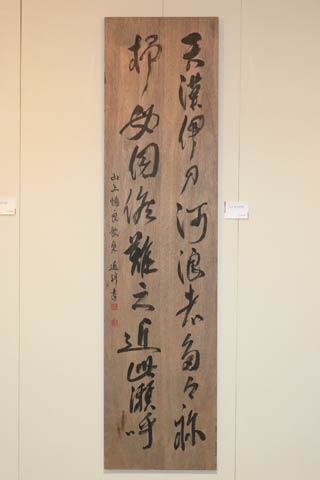 天漢伊刀河浪者多々祢
杼母伺候難之近此瀬呼
山上憶良歌 書